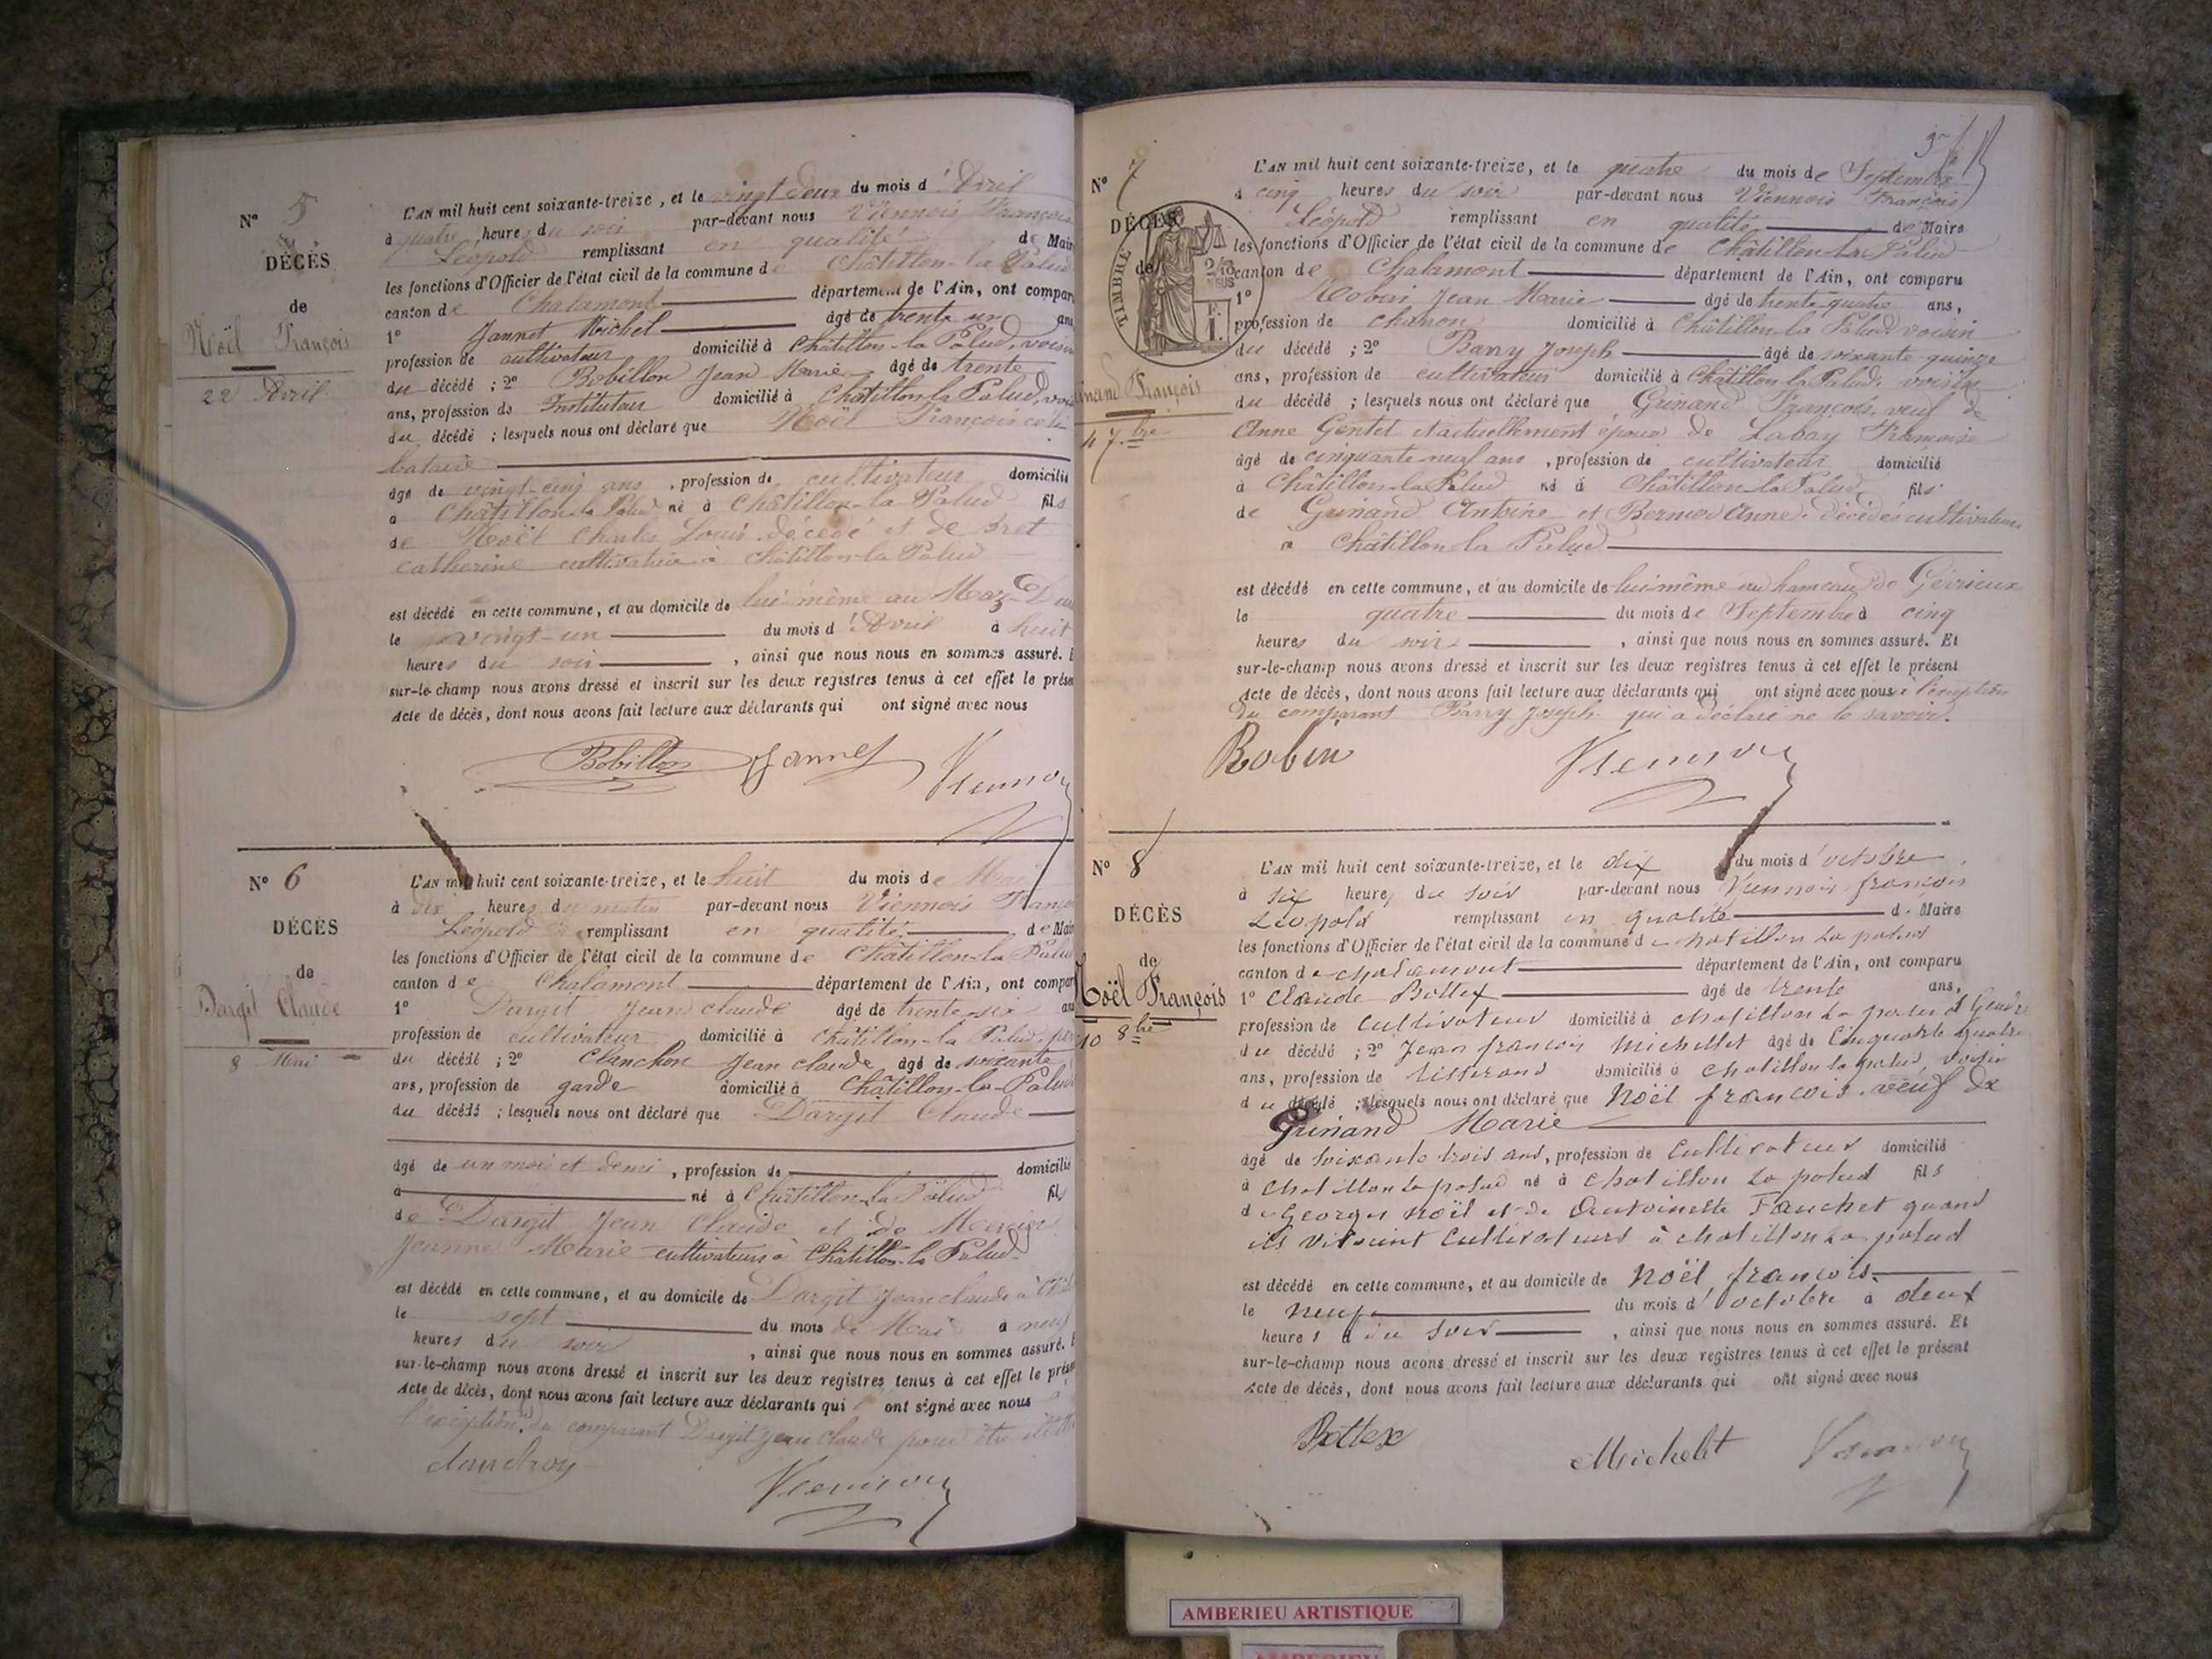 N° 5
DÉCÈS
de
Noël François
22 Avril
L'AN mil huit cent soixante-treize, et le vingt deux du mois d'Avril
à quatre heures du soir par-devant nous Viennois François
Léopold remplissant en qualité de Maire
les fonctions d'Officier de l'état civil de la commune de Châtillon-la-Palud
canton de Chalamont département de l'Ain, ont compar
1° Jannet Michel âgé de trente un ans
profession de cultivateur domicilié à Châtillon-la-Palud, voisin
du décédé ; 2° Bobillon Jean Marie âgé de trente
ans, profession de Instituteur domicilié à Châtillon-la-Palud, voi
du décédé ; lesquels nous ont déclaré que Noël François céli
bataire
âgé de vingt-cinq ans, profession de cultivateur domicilié
à Châtillon-la-Palud né à Châtillon-la-Palud fils
de Noël Charles Louis décédé et de Bret
Catherine cultivatrice à Châtillon-la-Palud
est décédé en cette commune, et au domicile de lui-même au Maz
le vingt-un du mois d'Avril à huit
heures du soir, ainsi que nous nous en sommes assuré. E
sur-le-champ nous avons dressé et inscrit sur les deux registres tenus à cet effet le prése
Acte de décès, dont nous avons fait lecture aux déclarants qui ont signé avec nous
Bobillon Jannet Viennois
N° 6
DÉCÈS
de
Dargit Claude
8 Mai
L'AN mil huit cent soixante-treize, et le huit du mois de Mai
à dix heures du matin par-devant nous Viennois François
Léopold remplissant en qualité de Maire
les fonctions d'Officier de l'état civil de la commune de Châtillon-la-Palud
canton de Chalamont département de l'Ain, ont compar
1° Dargit Jean Claude âgé de trente-six ans
profession de cultivateur domicilié à Châtillon-la-Palud, père
du décédé ; 2° Clanchon Jean Claude âgé de soixante
ans, profession de garde domicilié à Châtillon-la-Palud
du décédé ; lesquels nous ont déclaré que Dargit Claude
âgé de un mois et demi, profession de domicilié
à né à Châtillon-la-Palud fils
de Dargit Jean Claude et de Mercier
Jeanne Marie cultivateurs à Châtillon-la-Palud
est décédé en cette commune, et au domicile de Dargit Jean Claude à
le sept du mois de Mai à neuf
heures du soir, ainsi que nous nous en sommes assuré. E
sur-le-champ nous avons dressé et inscrit sur les deux registres tenus à cet effet le prése
Acte de décès, dont nous avons fait lecture aux déclarants qui ont signé avec nous à
l'exception du comparant Dargit Jean Claude pour être
Viennois
N° 7
DÉCÈS
de
TIMBRE
Grinand François
4 7.bre
L'AN mil huit cent soixante-treize, et le quatre du mois de Septembre
à cinq heures du soir par-devant nous Viennois François
Léopold remplissant en qualité de Maire
les fonctions d'Officier de l'état civil de la commune de Châtillon-la-Palud
canton de Chalamont département de l'Ain, ont comparu
1° Robin Jean Marie âgé de trente-quatre ans,
profession de charron domicilié à Châtillon-la-Palud, voisin
du décédé ; 2° Barry Joseph âgé de soixante-quinze
ans, profession de cultivateur domicilié à Châtillon-la-Palud, voisin
du décédé ; lesquels nous ont déclaré que Grinand François, veuf de
Anne Gentet et actuellement époux de Labay Françoise
âgé de cinquante neuf ans, profession de cultivateur domicilié
à Châtillon-la-Palud né à Châtillon-la-Palud fils
de Grinand Antoine et Bernier Anne. décédés cultivateurs
à Châtillon-la-Palud
est décédé en cette commune, et au domicile de lui-même au hameau de Gévrieux
le quatre du mois de Septembre à cinq
heures du soir, ainsi que nous nous en sommes assuré. Et
sur-le-champ nous avons dressé et inscrit sur les deux registres tenus à cet effet le présent
Acte de décès, dont nous avons fait lecture aux déclarants qui ont signé avec nous à l'exception
du comparant Barry Joseph qui a déclaré ne le savoir.
Robin Viennois
N° 8
DÉCÈS
de
Noël François
10 8bre
L'AN mil huit cent soixante-treize, et le dix du mois d'octobre
à six heures du soir par-devant nous Viennois françois
Léopold remplissant en qualité de Maire
les fonctions d'Officier de l'état civil de la commune de chatillon la palud
canton de chalamont département de l'Ain, ont comparu
1° Claude Bottex âgé de trente ans,
profession de Cultivateur domicilié à chatillon la palud Gendre
du décédé ; 2° Jean françois Michellet âgé de Cinquante quatre
ans, profession de tisserand domicilié à chatillon la palud, voisin
du décédé ; lesquels nous ont déclaré que Noël françois. veuf de
Grinand Marie
âgé de soixante trois ans, profession de Cultivateur domicilié
à chatillon la palud né à chatillon la palud fils
de Georges Noël et de Antoinette Fauchet quand
ils vivaient Cultivateurs à chatillon la palud
est décédé en cette commune, et au domicile de Noël françois.
le neuf du mois d'octobre à deux
heures du soir, ainsi que nous nous en sommes assuré. Et
sur-le-champ nous avons dressé et inscrit sur les deux registres tenus à cet effet le présent
Acte de décès, dont nous avons fait lecture aux déclarants qui ont signé avec nous
Bottex Michelet Viennois
AMBERIEU ARTISTIQUE
AMBERIEU